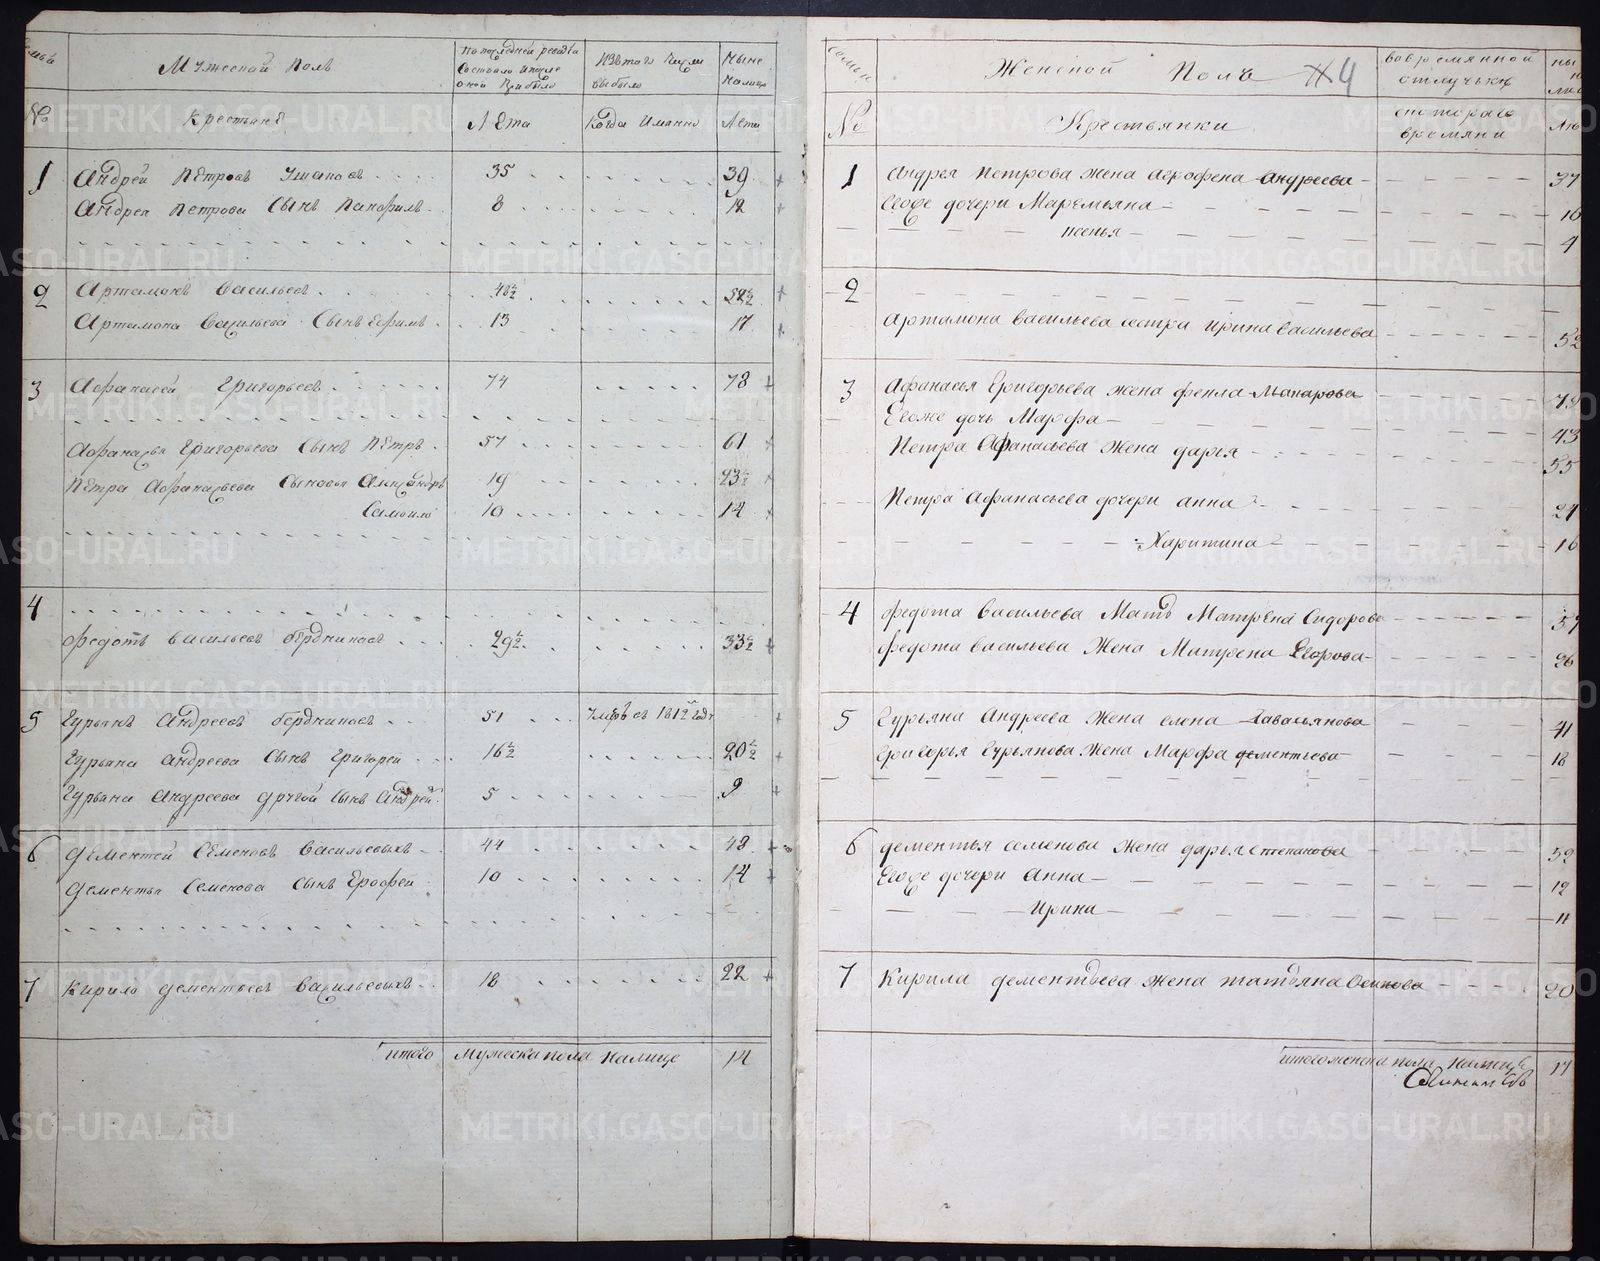 Мужеской Полъ
По последней ревизiи состояло и после оной прибыло
Изъ того числа выбыло
Ныне налицо
№ Крестьянѣ Лѣта Когда Имянно Лета
1 Андрей Петровъ Ушаковъ 35 39
Андрея Петрова Сынъ Панфилъ 8 12
2 Артамонъ Васильевъ 48½ 52½
Артамона Васильева Сынъ Ефимъ 13 17
3 Афанасей Григорьевъ 74 78
Афанасья Григорьева Сынъ Петръ 57 61
Петра Афанасьева Сыновья Александръ 19 23½
Самоило 10 14
4
Федотъ Васильевъ бердниковъ 29½ 33½
5 Гурьянъ Андреевъ бердниковъ 51 Умре въ 1812 годе
Гурьяна Андреева Сынъ Григорей 16½ 20½
Гурьяна Андреева другой Сынъ Андрей 5 9
6 Дементей Семеновъ Васильевыхъ 44 48
Дементья Семенова Сынъ Ерофей 10 14
7 Кирило Дементьевъ Васильевыхъ 18 22
итого мужеска пола налице 14
Женской Полъ 4
во временной отлучьке
№ Крестьянки
с котораго времяни
1 Андрея Петрова жена Агрофена Андреева 37
Егоже дочери Маремьяна 16
Ксенья 4
2
Артамона Васильева сестра Ирина Васильева 52
3 Афанасья Григорьева жена фекла Макарова
Егоже дочь Марфа 43
Петра Афанасьева жена дарья 55
Петра Афанасьева дочери анна 21
Харитина 16
4 Федота Васильева Мать Матрена Сидорова 57
Федота Васильева Жена Матрена Егорова 26
5 Гурьяна Андреева Жена елена 41
Григорья Гурьянова Жена Марфа дементьева 18
6 дементья семенова Жена дарья степанова 52
Егоже дочери Анна 12
Ирина 11
7 Кирила дементьева жена татьяна Осипова 20
итого женска пола налице 17
METRIKI.GASO-URAL.RU